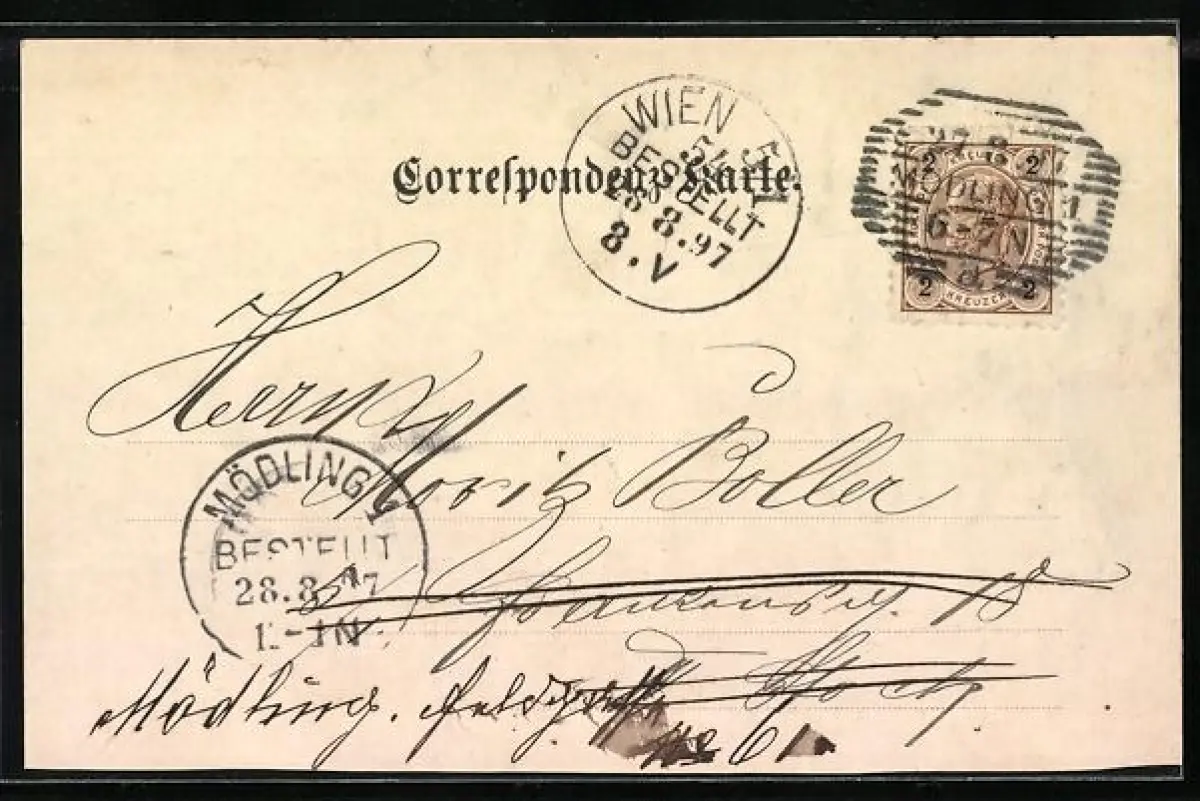 Correspondenz-Karte.
WIEN 5/1
BESTELLT
28 8.97
8.V
2 KREUZER 2
MÖDLING 1
6-7N
2 KREUZER 2
Herrn
Moritz Boller
18
Stock
MÖDLING 1
BESTELLT
28.8.97
-1N
Mödling. Feldgasse
No 61